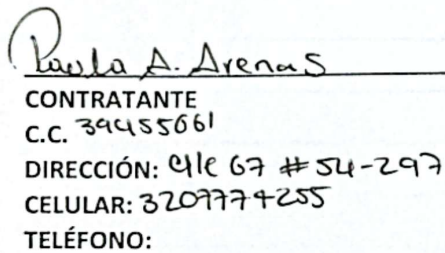 Paola A. Arenas
CONTRATANTE
C.C. 39455061
DIRECCIÓN: Clle 67 # 54-297
CELULAR: 3207774255
TELÉFONO: